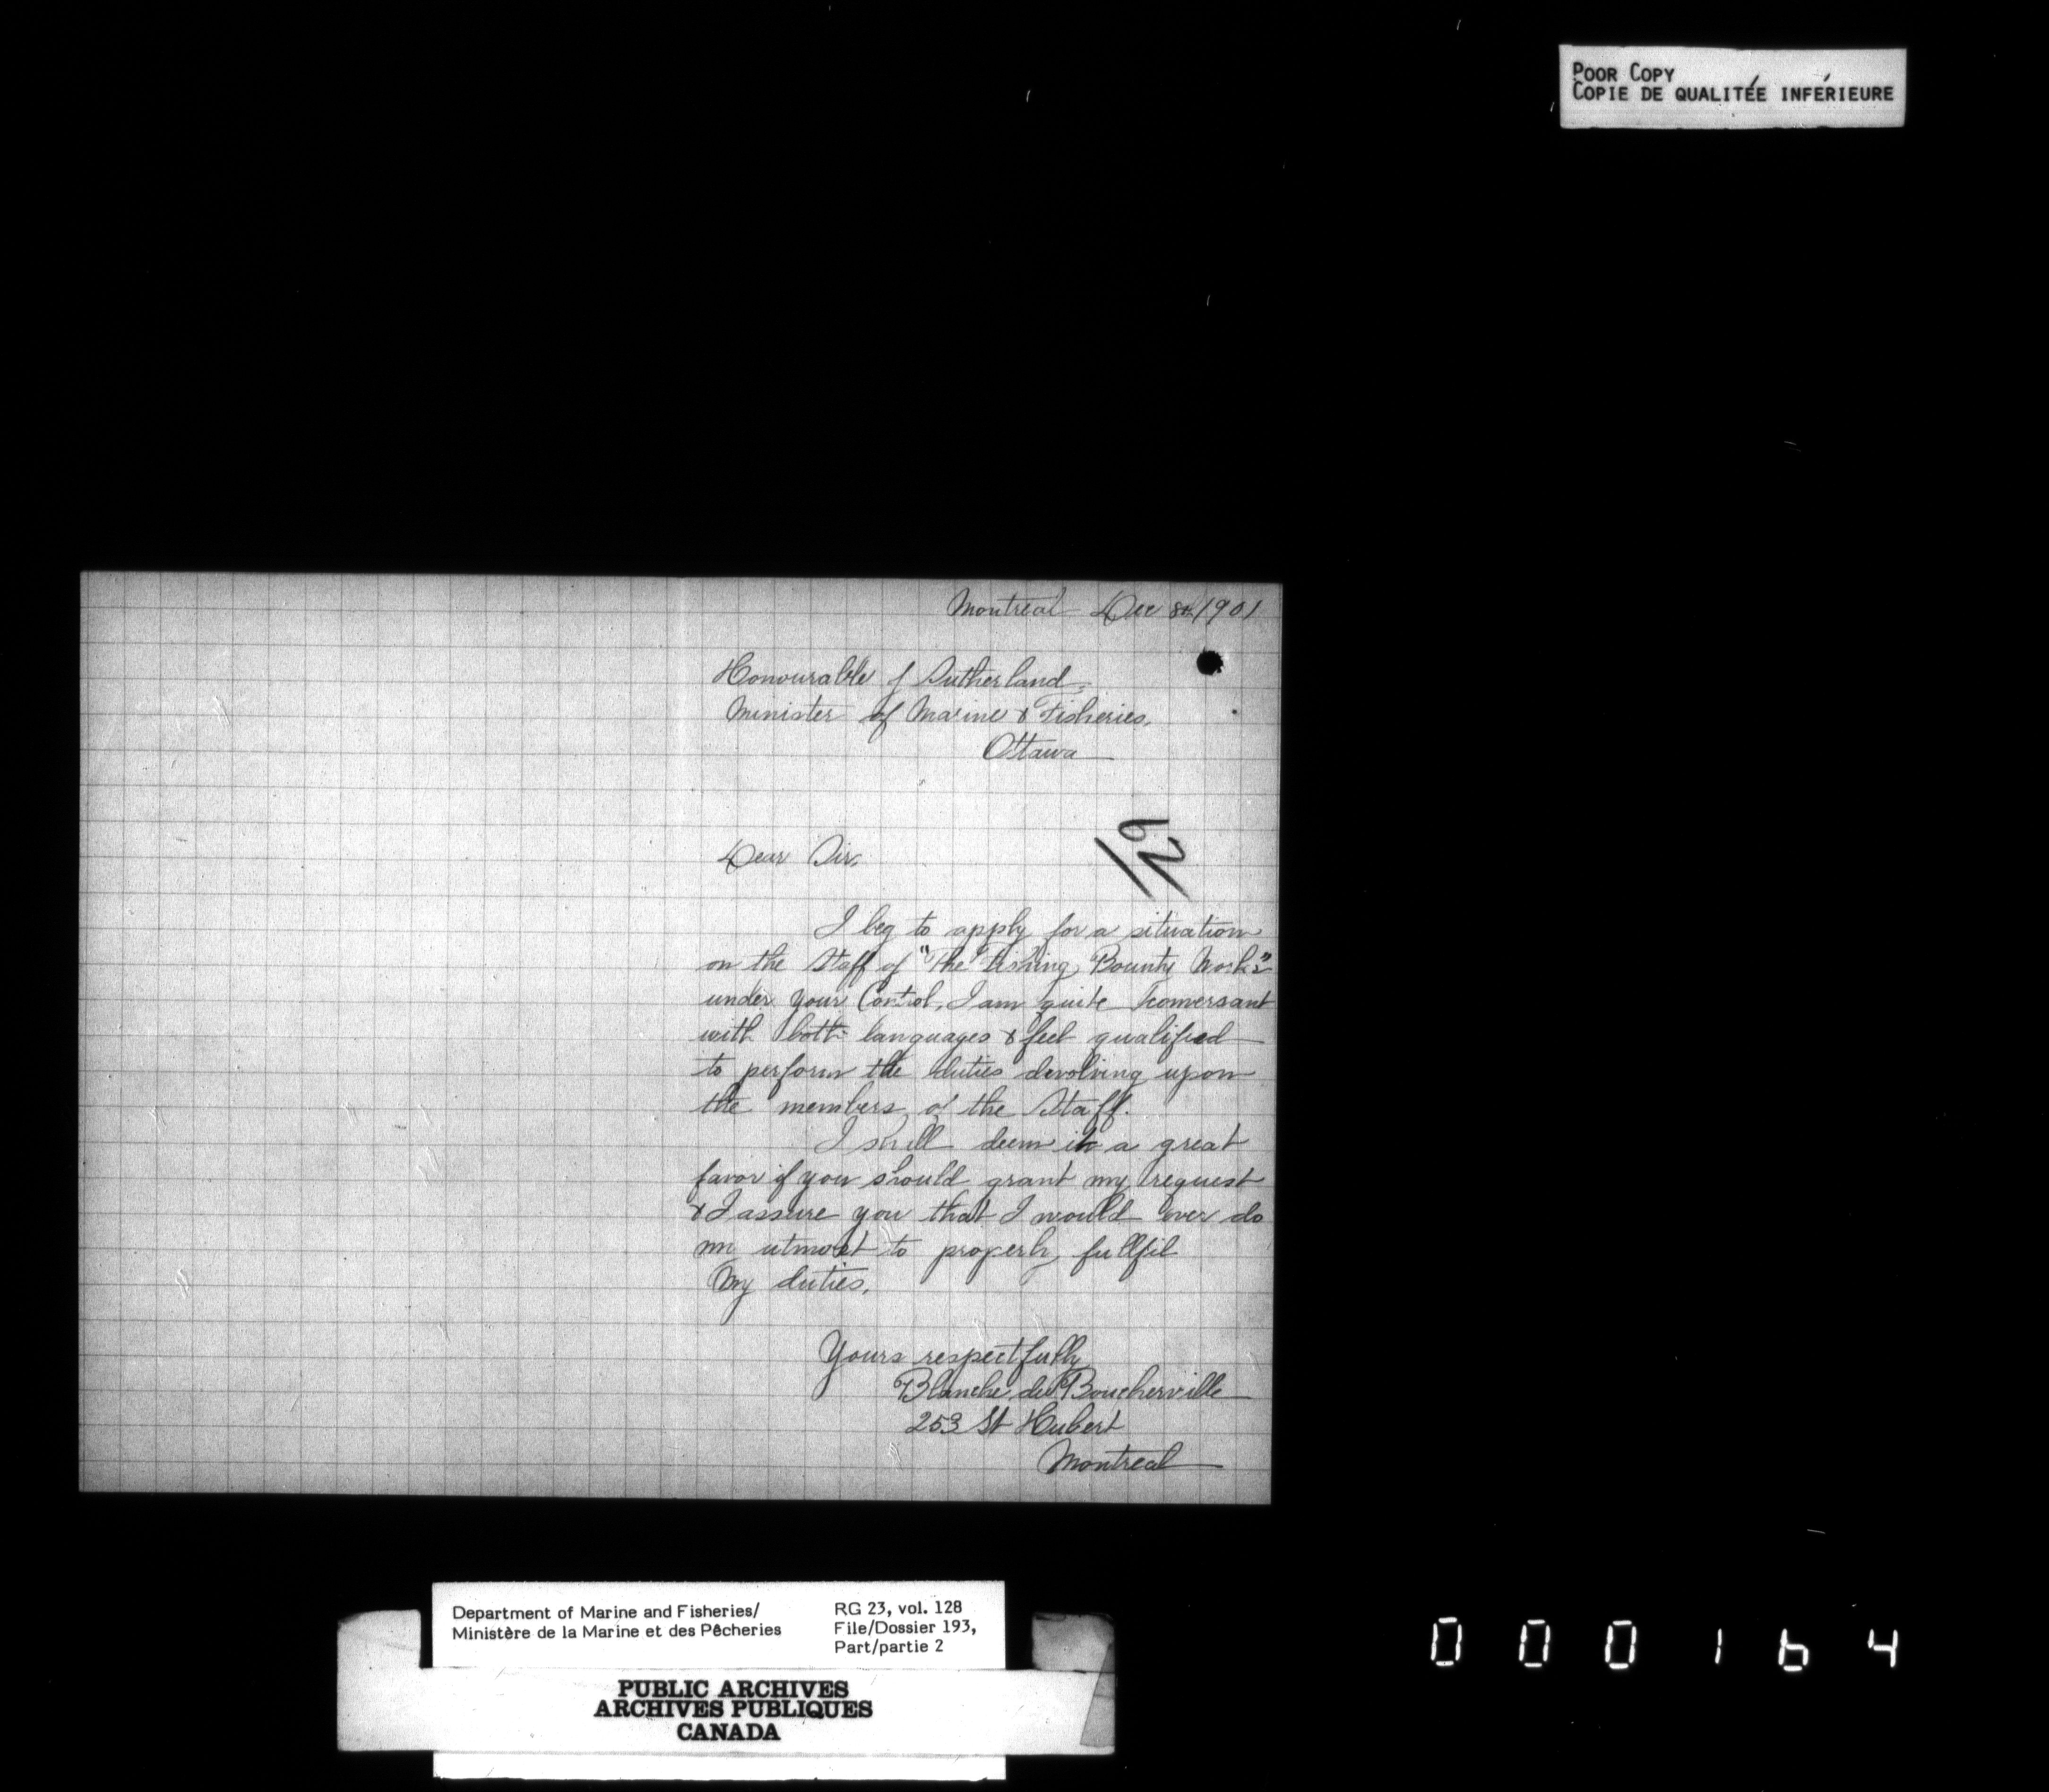 POOR COPY
COPIE DE QUALITÉE INFÉRIEURE
Montreal Dec 8th 1901
Honourable J Sutherland,
Minister of Marine & Fisheries,
Ottawa
Dear Sir,
I beg to apply for a situation
on the Staff of "The Fishing Bounty Works"
under your Control, I am quite conversant
with both languages & feel qualified
to perform the duties devolving upon
the members of the Staff.
I shall deem it a great
favor if you should grant my request
& I assure you that I would ever do
my utmost to properly fullfil
My duties.
Yours respectfully
Blanche de Boucherville
253 St Hubert
Montreal
Department of Marine and Fisheries/
Ministère de la Marine et des Pêcheries
RG 23, vol. 128
File/Dossier 193,
Part/partie 2
PUBLIC ARCHIVES
ARCHIVES PUBLIQUES
CANADA
000164